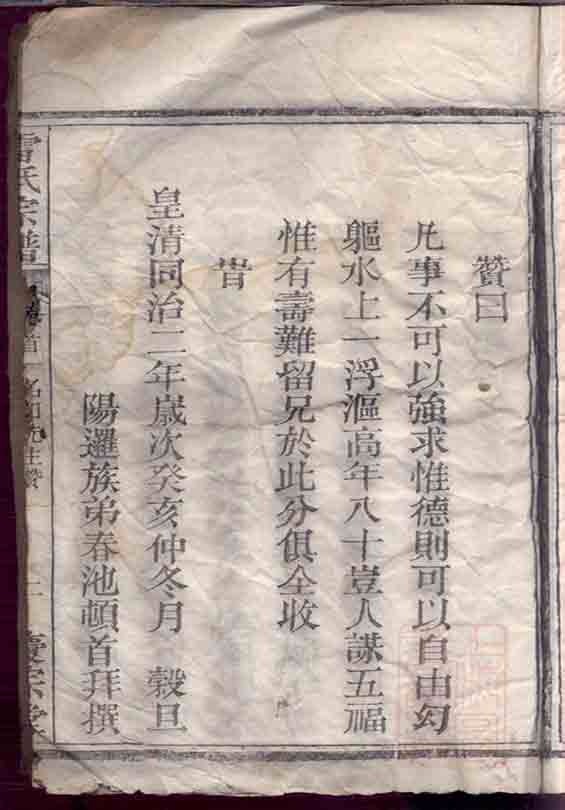 贊曰
凡事不可以強求惟德則可以自由幻
軀水上一浮漚高年八十豈人謀五福
惟有壽難留兄於此分俱全收
旹
皇清同治二年歲次癸亥仲冬月 穀旦
陽邏族弟春池頓首拜撰
雷氏宗譜 卷首 先生贊